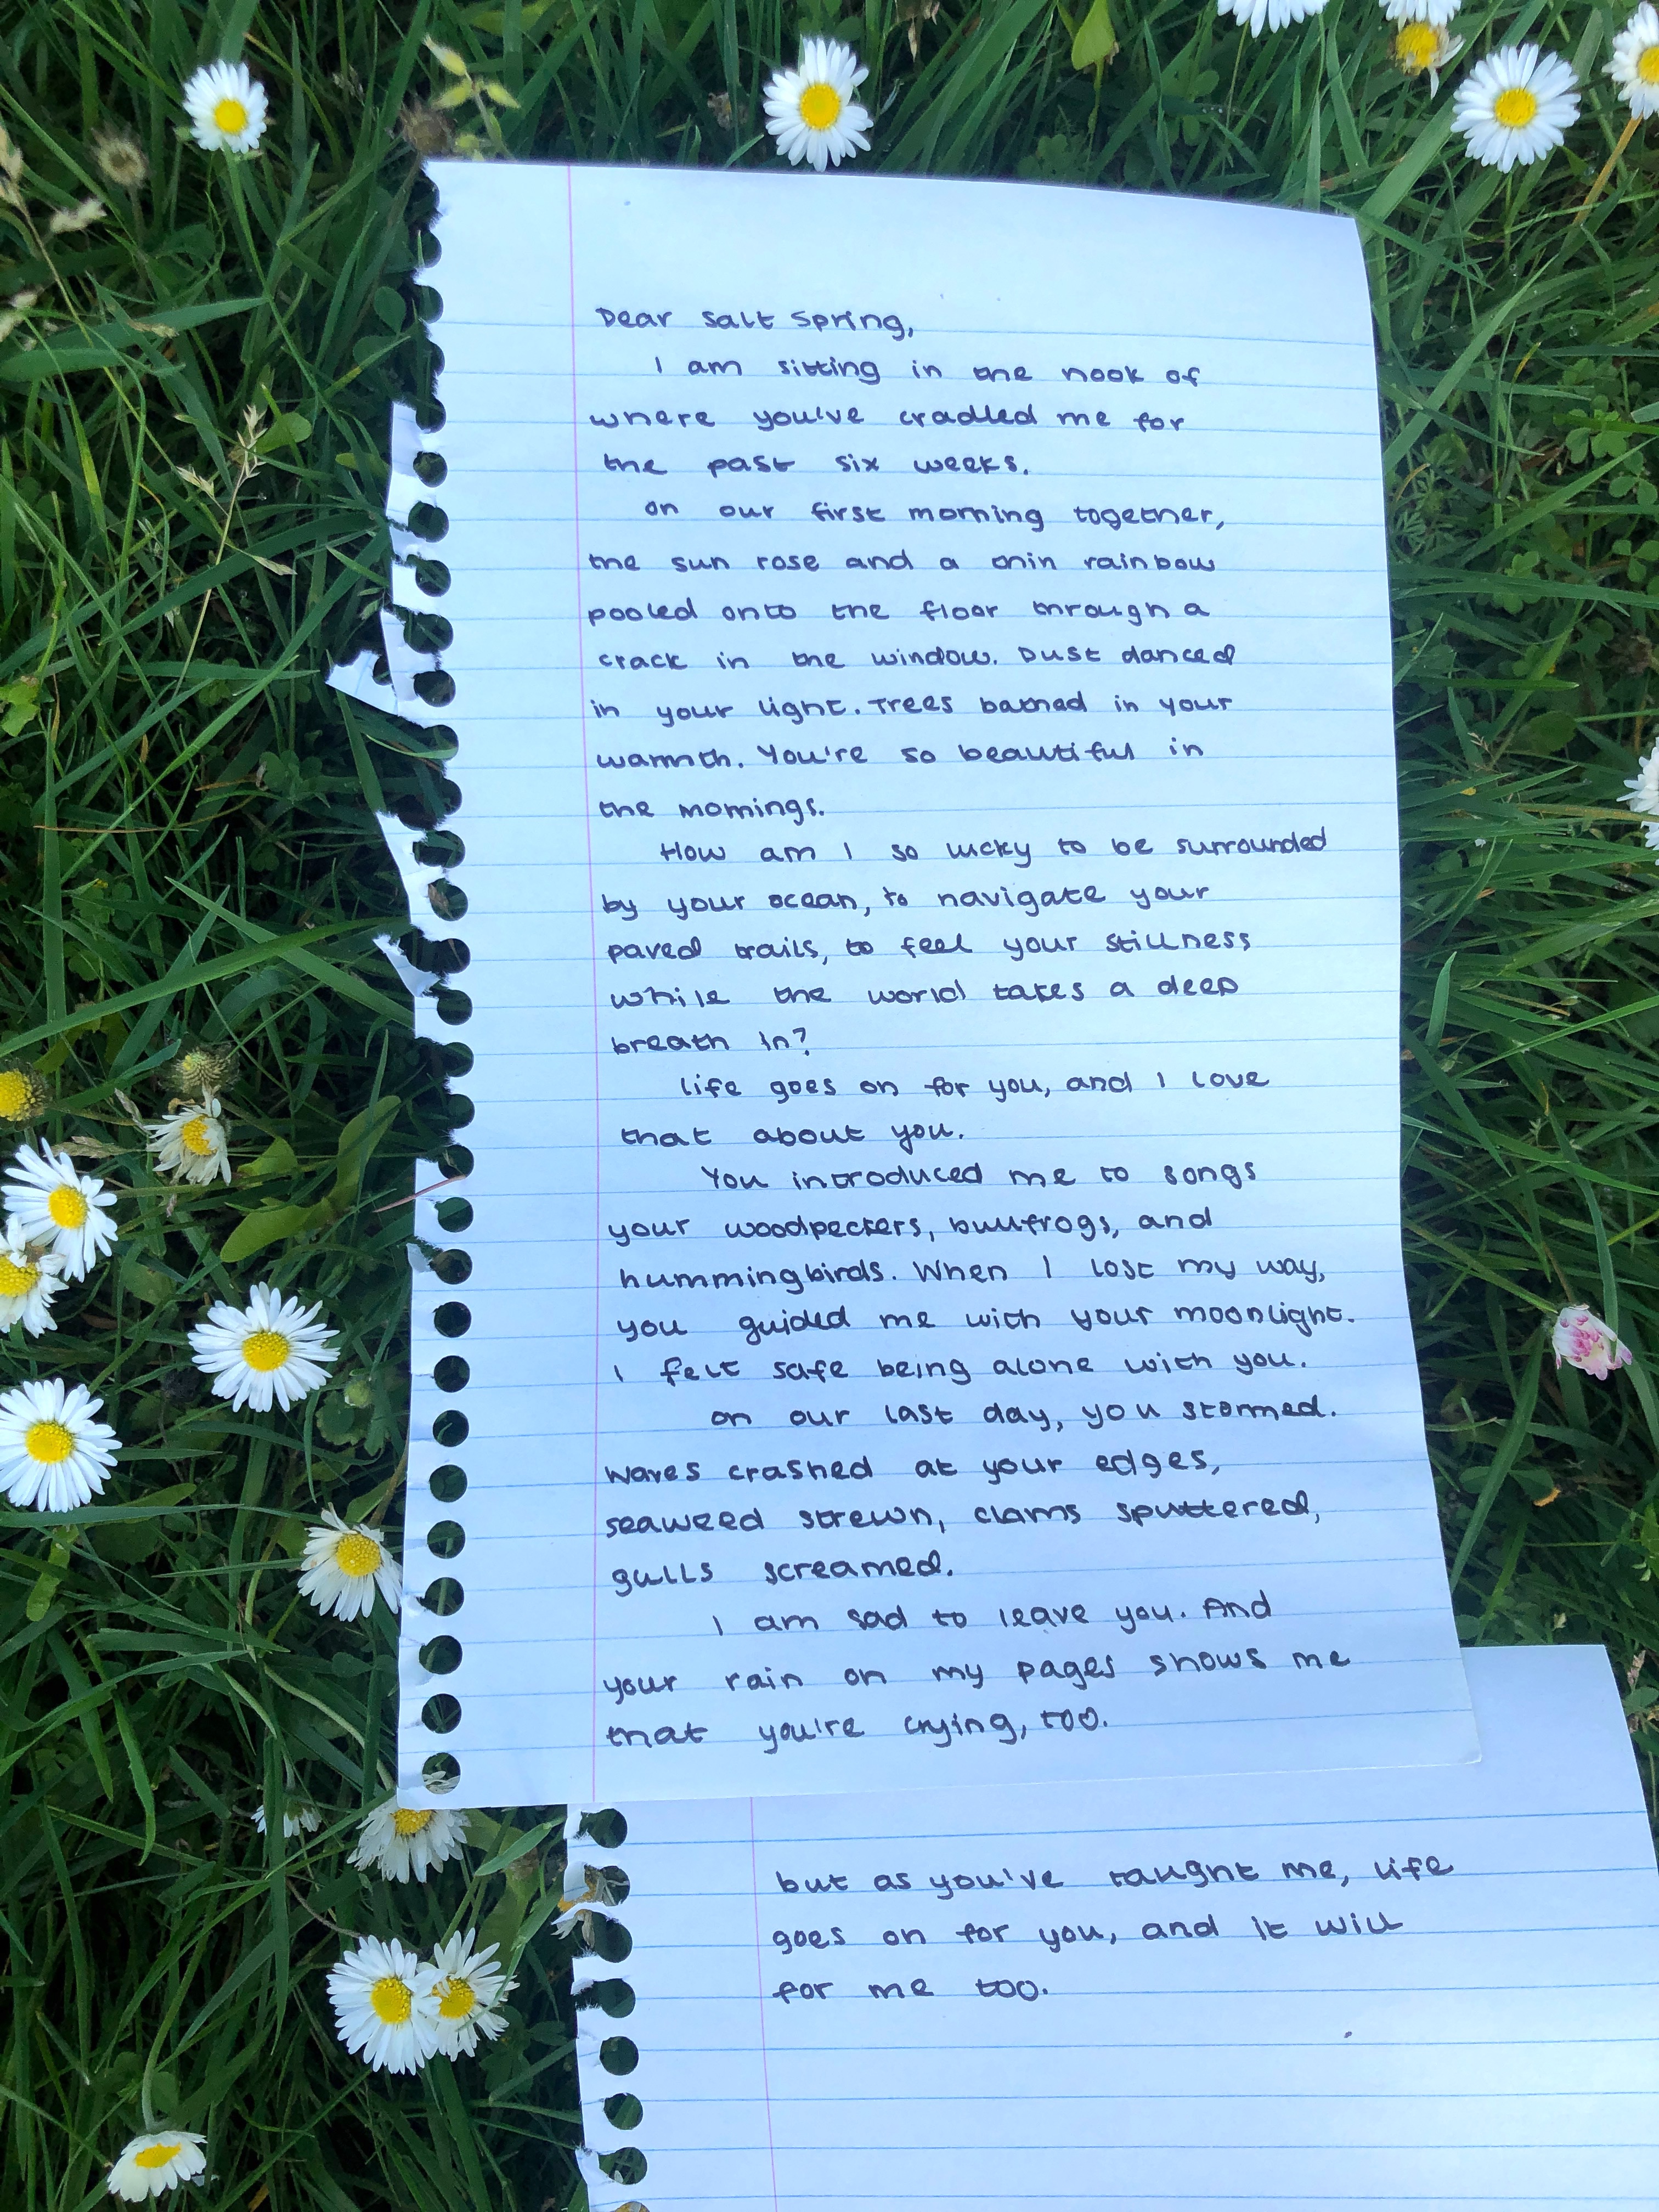 Dear Salt Spring,
I am sitting in the nook of
where you've cradled me for
the past six weeks.
on our first morning together,
the sun rose and a thin rainbow
pooled onto the floor through a
crack in the window. Dust danced
in your light. Trees bathed in your
warmth. You're so beautiful in
the mornings.
How am I so lucky to be surrounded
by your ocean, to navigate your
paved trails, to feel your stillness
while the world takes a deep
breath in?
life goes on for you, and I love
that about you.
You introduced me to songs
your woodpeckers, bullfrogs, and
hummingbirds. When I lost my way,
you guided me with your moonlight.
I felt safe being alone with you.
on our last day, you stormed.
Waves crashed at your edges,
seaweed strewn, clams sputtered,
gulls screamed.
I am sad to leave you. And
your rain on my pages shows me
that you're crying, too.
but as you've taught me, life
goes on for you, and it will
for me too.